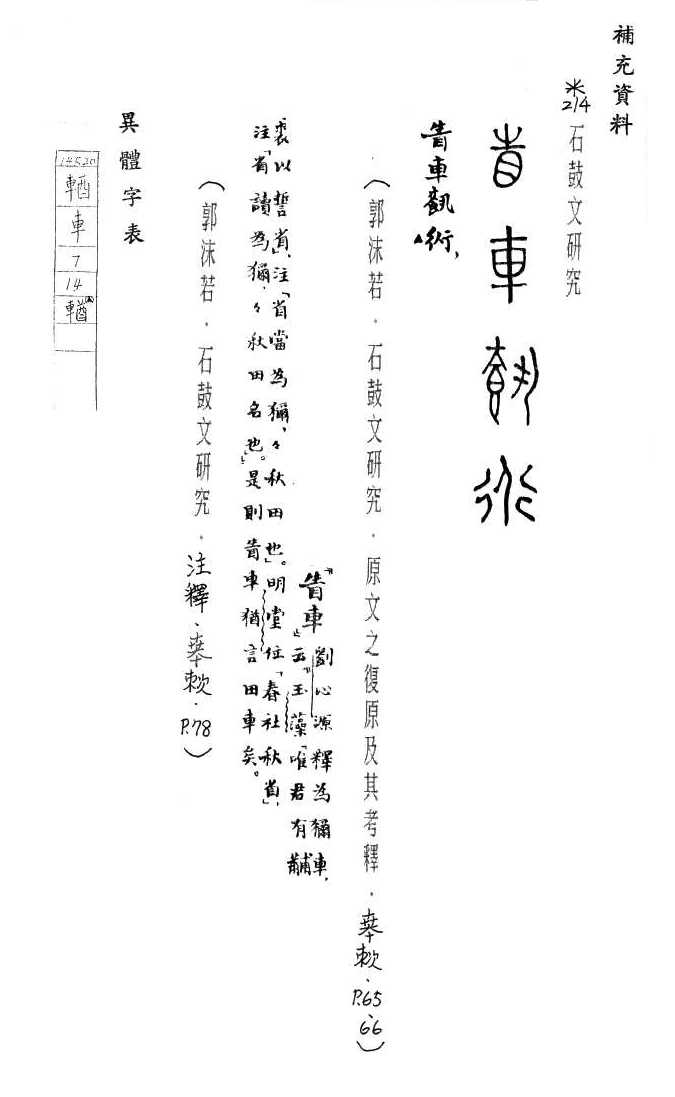 補充資料
※214 石鼓文研究
眚車 行
眚車 衍、
(郭沫若．石鼓文研究．原文之復原及其考釋．㚔敕．P.65、66)
"眚車"
劉心源釋為獮車，
云"玉藻「唯君有黼
裘以誓省」，注「省當為獮，々秋田也」。明堂位「春社秋省」，
注「省讀為獮，々秋田名也」。是則眚車猶言田車矣。
(郭沫若．石鼓文研究．注釋．㚔敕．P.78)
異體字表
14520
輶
車
7
14
輶